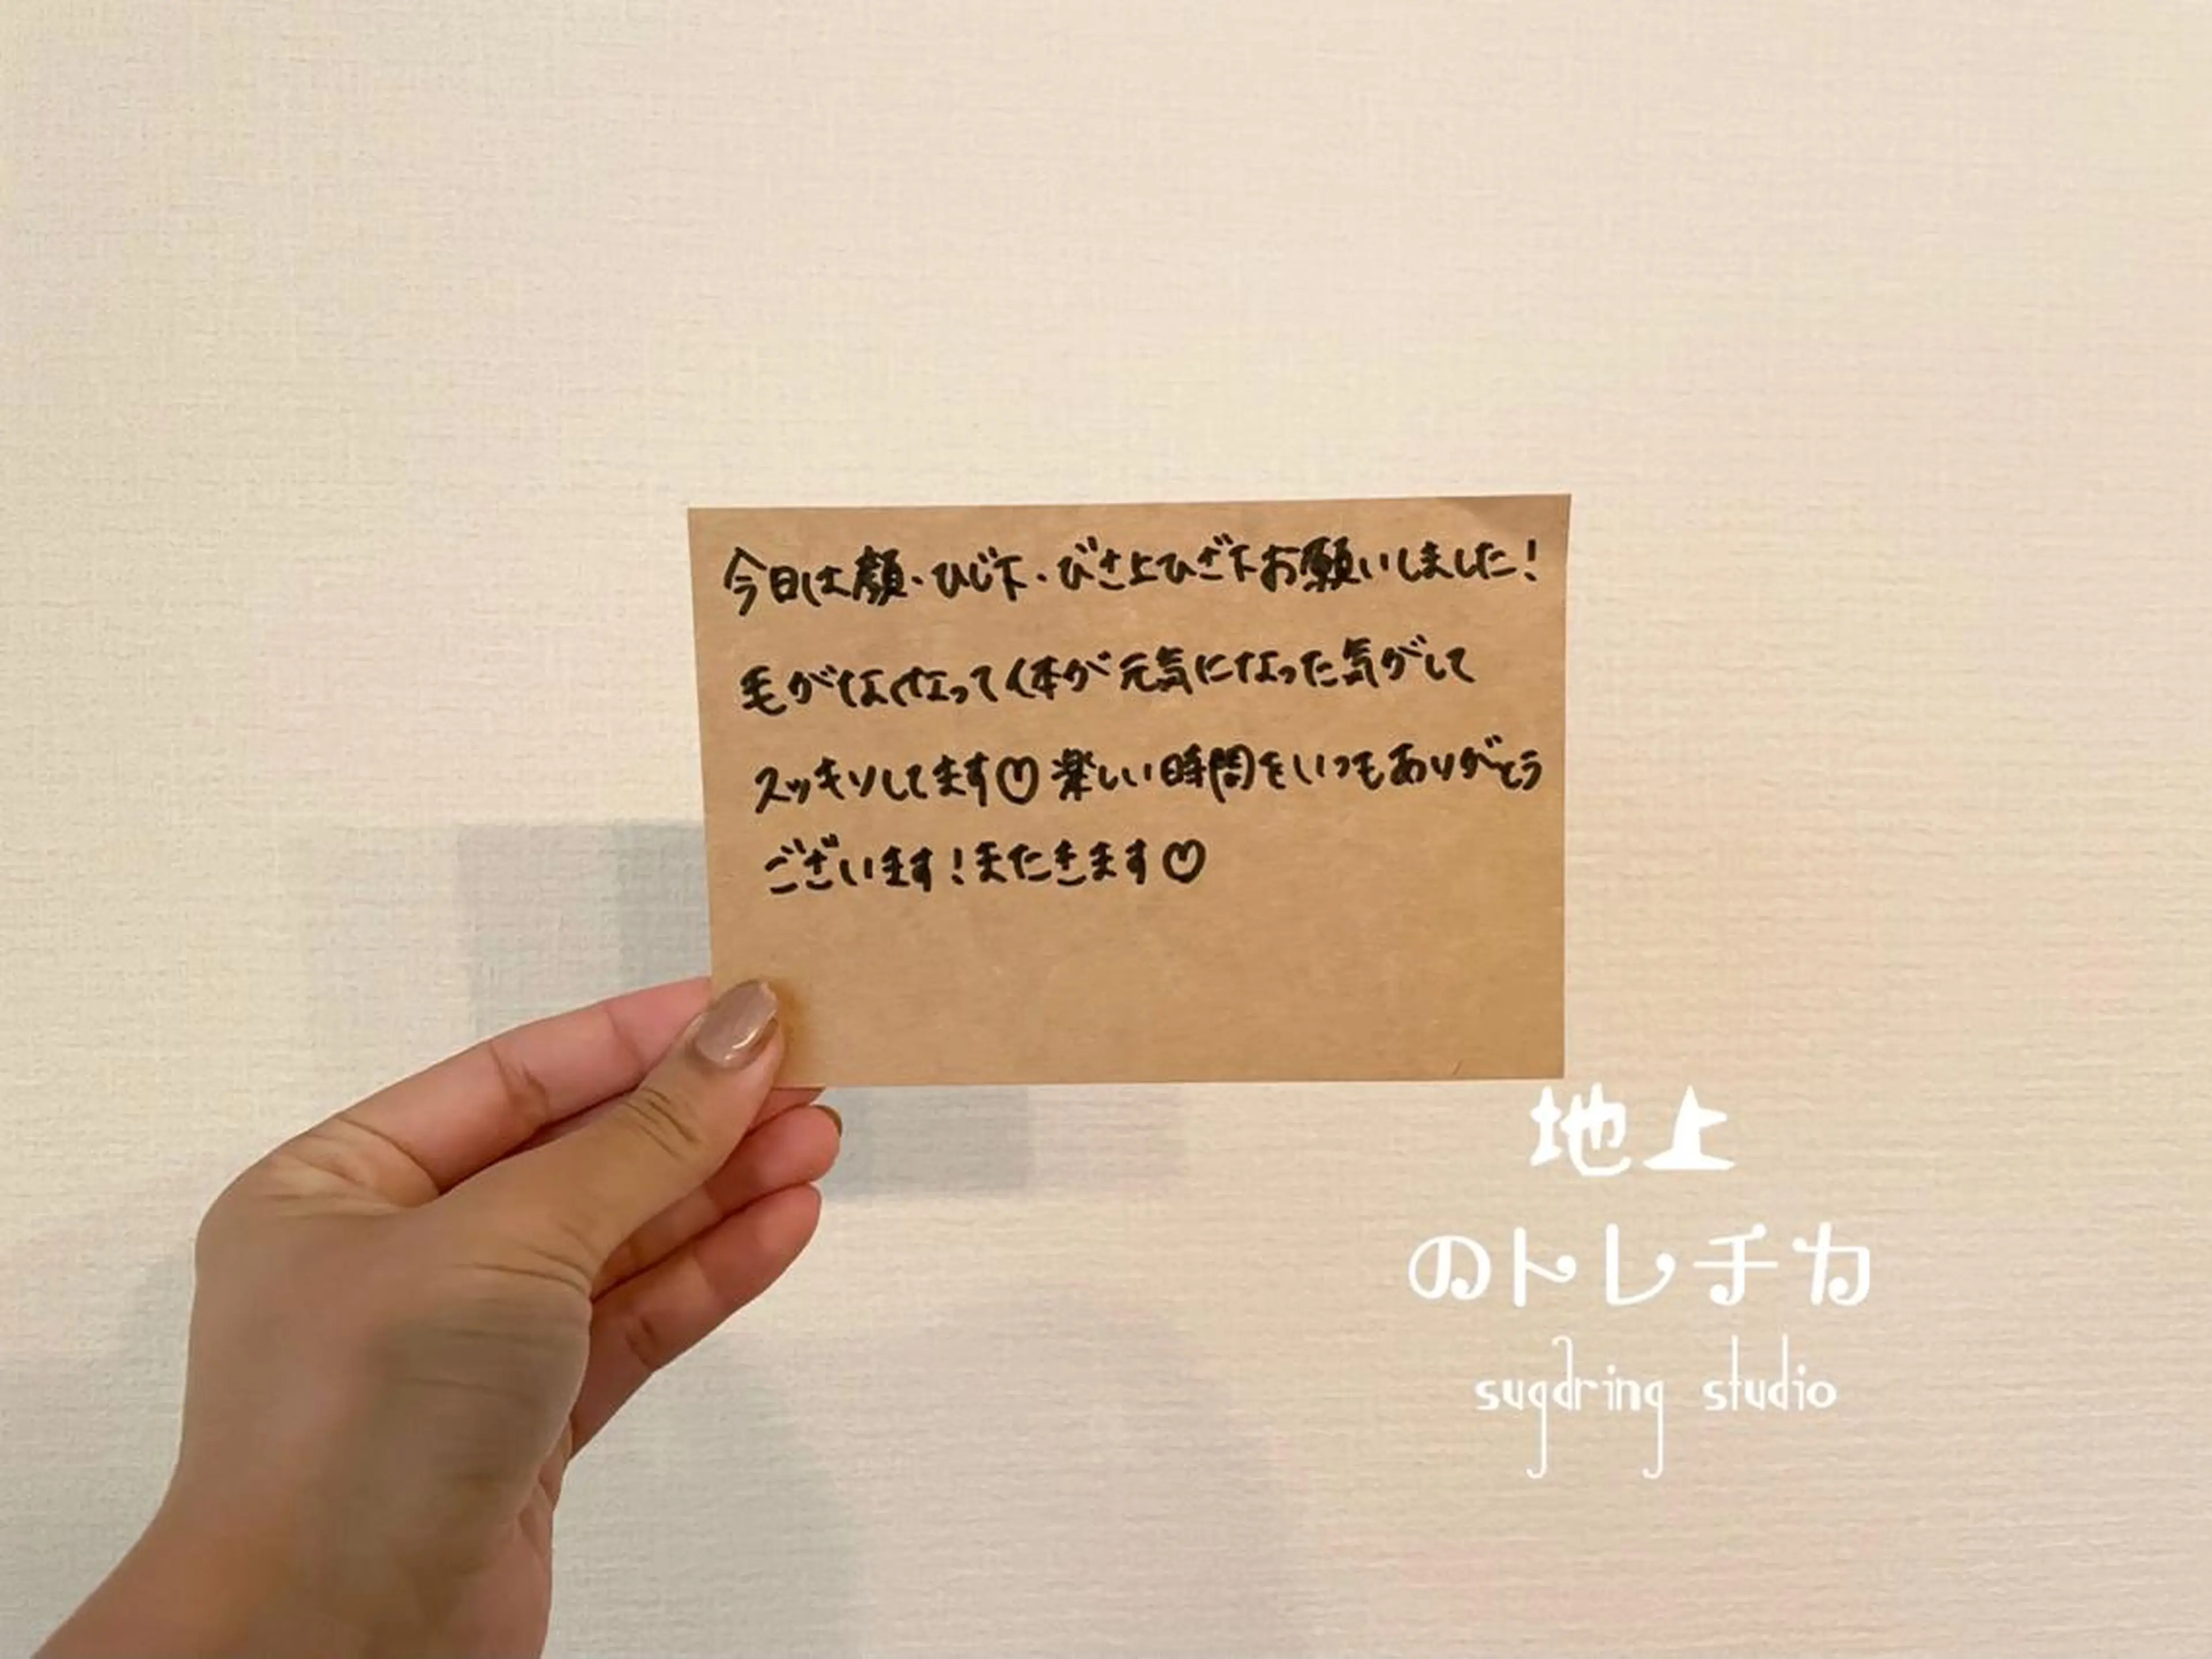 今日は顔・ひじ下・びざ上ひざ下お願いしました!
毛がなくなって体が元気になった気がして
スッキリしてます♡楽しい時間をいつもありがとう
ございます!またきます♡
地上
のトレチカ
sugdring studio